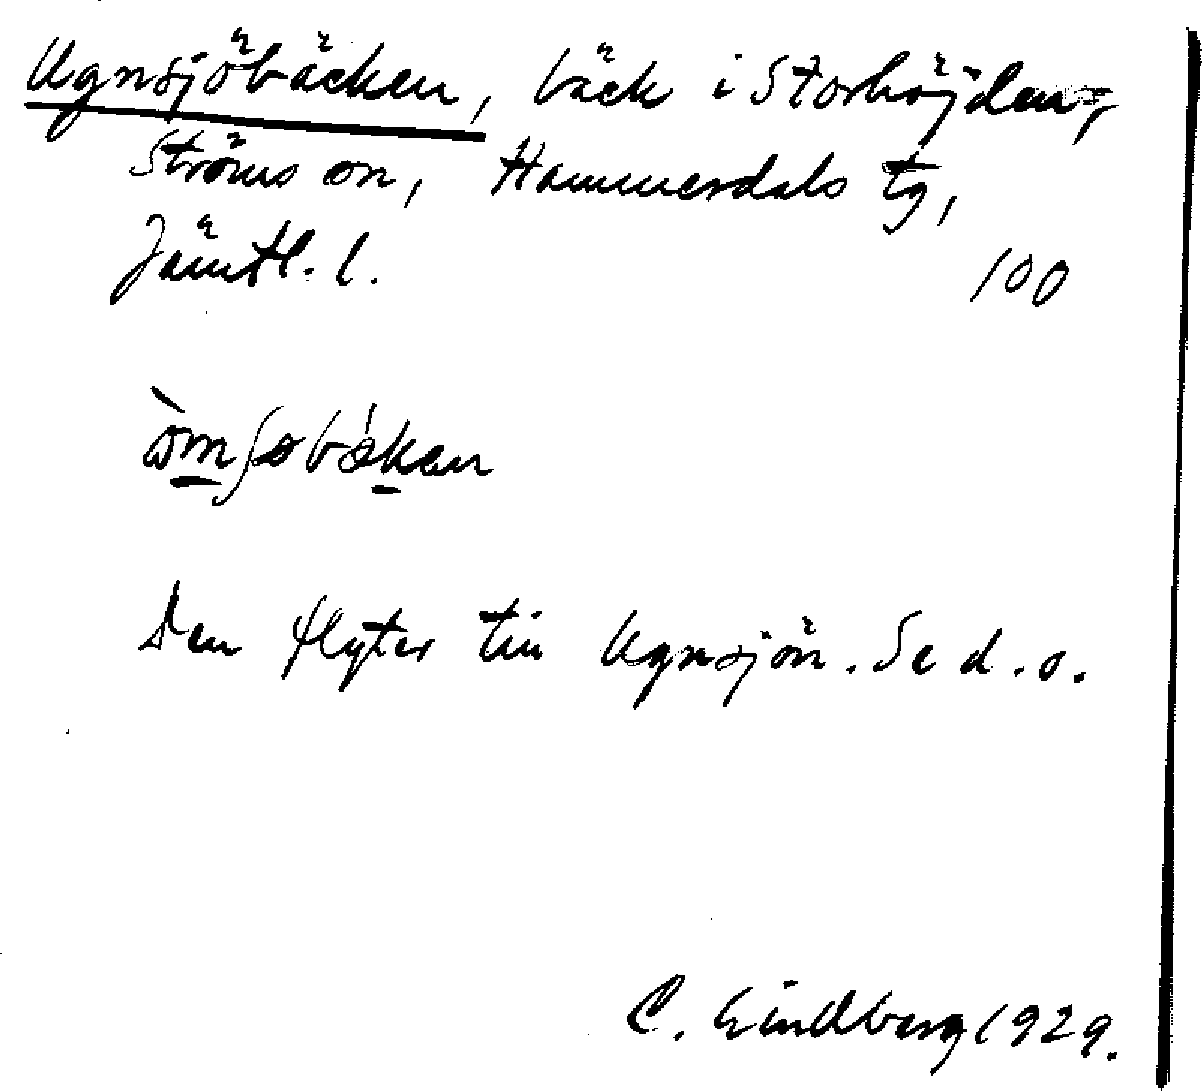 Ugnsjöbäcken, bäck i Storhöjden,
Ströms sn, Hammerdals tg,
Jämtl. l.
100
Den flyter till Ugnsjön. Se d. o.
C. Lindberg 1929.